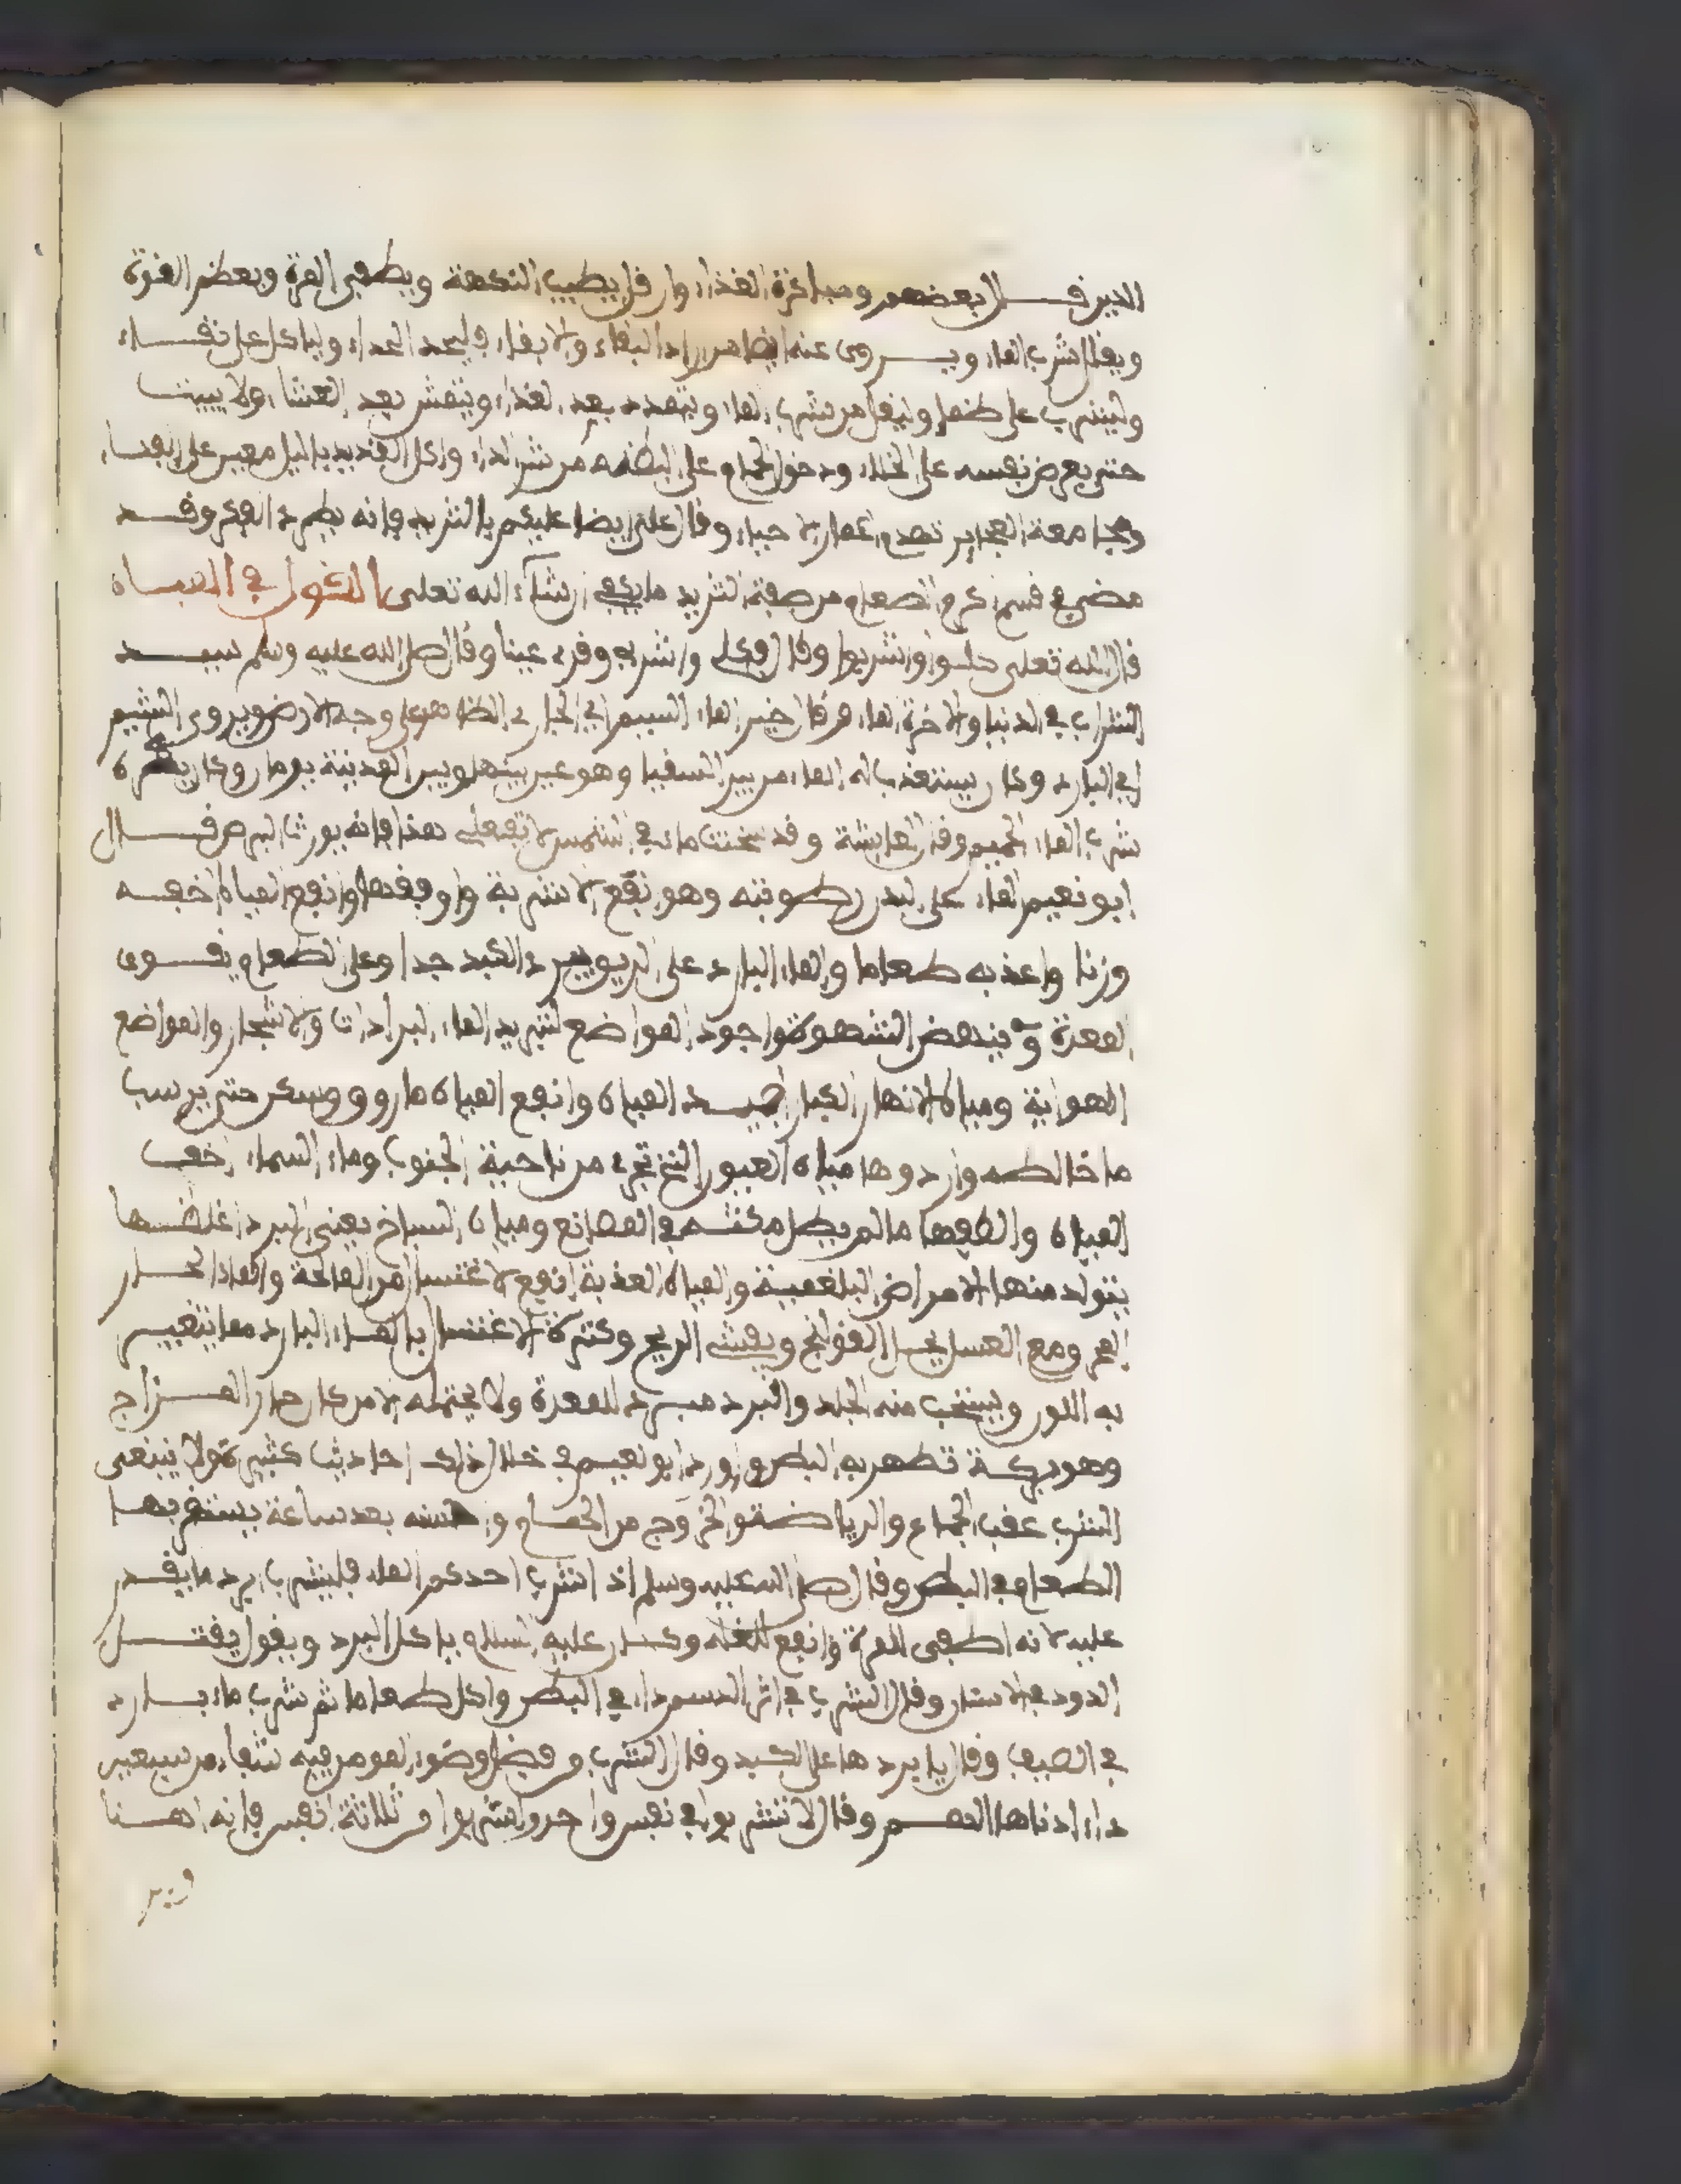 الدين قال بعضهم ومباكرة الغذاء وان قل يطيب النكهة ويطفي المرة ويعظم القوة
ويقل شرب الماء ويروى عنه ايضا من اراد البقاء ولا بقاء فليجد الحذاء ولياكل على نقاء
وليشرب على ظما وليقل من شرب الماء ويتمدد بعد الغذاء ويتمش بعد العشاء ولا يبيت
حتى يعرض نفسه على الخلاء ودخول الحمام على البطنة من شر الداء واكل القديد باليل معين على الفناء
ومجامعة العجايز تهدم اعمار الاحياء وقال على ايضا عليكم بالثريد فانه يطرد الفكر وقد
مضى في قسم كرم الطعام من صفة الثريد ما يكفي ان شاء الله تعلى القول في المياه
قال الله تعلى كلوا واشربوا وقال فكلي واشربي وقري عينا وقال صلى الله عليه وسلم سيد
الشراب في الدنيا والاخرة الماء وقال خير الماء الشبم اي الجاري الظاهر على وجه الارض ويروى الشبم
اي البارد وكان يستعذب له الماء من بير السقيا وهو عين بينها وبين المدينة يومان وكان يكره
شرب الماء الحميم وقال لعايشة وقد سخنت ماء في الشمس لا تفعلي هذا فانه يورث البرص قال
ابو نعيم الماء على البدن رطوبته وهو انفع الاشربة واوفقها وانفع المياه اخفه
وزنا واعذبه طعاما والماء البارد على الريق يبرد الكبد جدا وعلى الطعام يقوى
المعدة وينهض الشهوة واجود المواضع لتبريد الماء البرادات والاشجار والمواضع
الهوائية ومياه الانهار الكبار جيد المياه وانفع المياه ما روق وسكر حتى يرسب
ما خالطه واردوها مياه العيون التي تجري من ناحية الجنوب وماء السماء اخف
المياه والطفها ما لم يطل مكثه في المصانع ومياه السباخ يعنى البرد اغلظها
يتولد منها الامراض البلغمية والمياه العذبة انفع لاغتسال من المالحة والماء الحار
المر ومع العسل يحل القولنج ويفشى الريح وكثرة الاغتسال بالماء البارد مما يتغير
به اللون ويستحب منه الجلد والبرد مبرد للمعدة ولا يحتمله الا من كان حار المزاج
وهو بركة تطهر به البطن واورد ابو نعيم في خلال ذلك احاديث كثيرة ولا ينبغى
الشرب عقب الجماع والرياضة والخروج من الحمام واحسنه بعد ساعة يستقر بها
الطعام في البطن وقال صلى الله عليه وسلم اذا شرب احدكم الماء فليشرب ابرد ما يقدر
عليه لانه اطفى للمرة وانفع للغلة وكان عليه السلام ياكل البرد ويقول يقتل
الدود في الاسنان وقال الشرب في اثر الدسم داء في البطن واكل طعاما ثم شرب ماء بارد
في الصيف وقال يا بردها على الكبد وقال الشرب من فضل وضوء المومن فيه شفاء من سبعين
داء ادناها الهم وقال لا تشربوا في نفس واحد واشربوا في ثلاثة انفس فانه اهنا